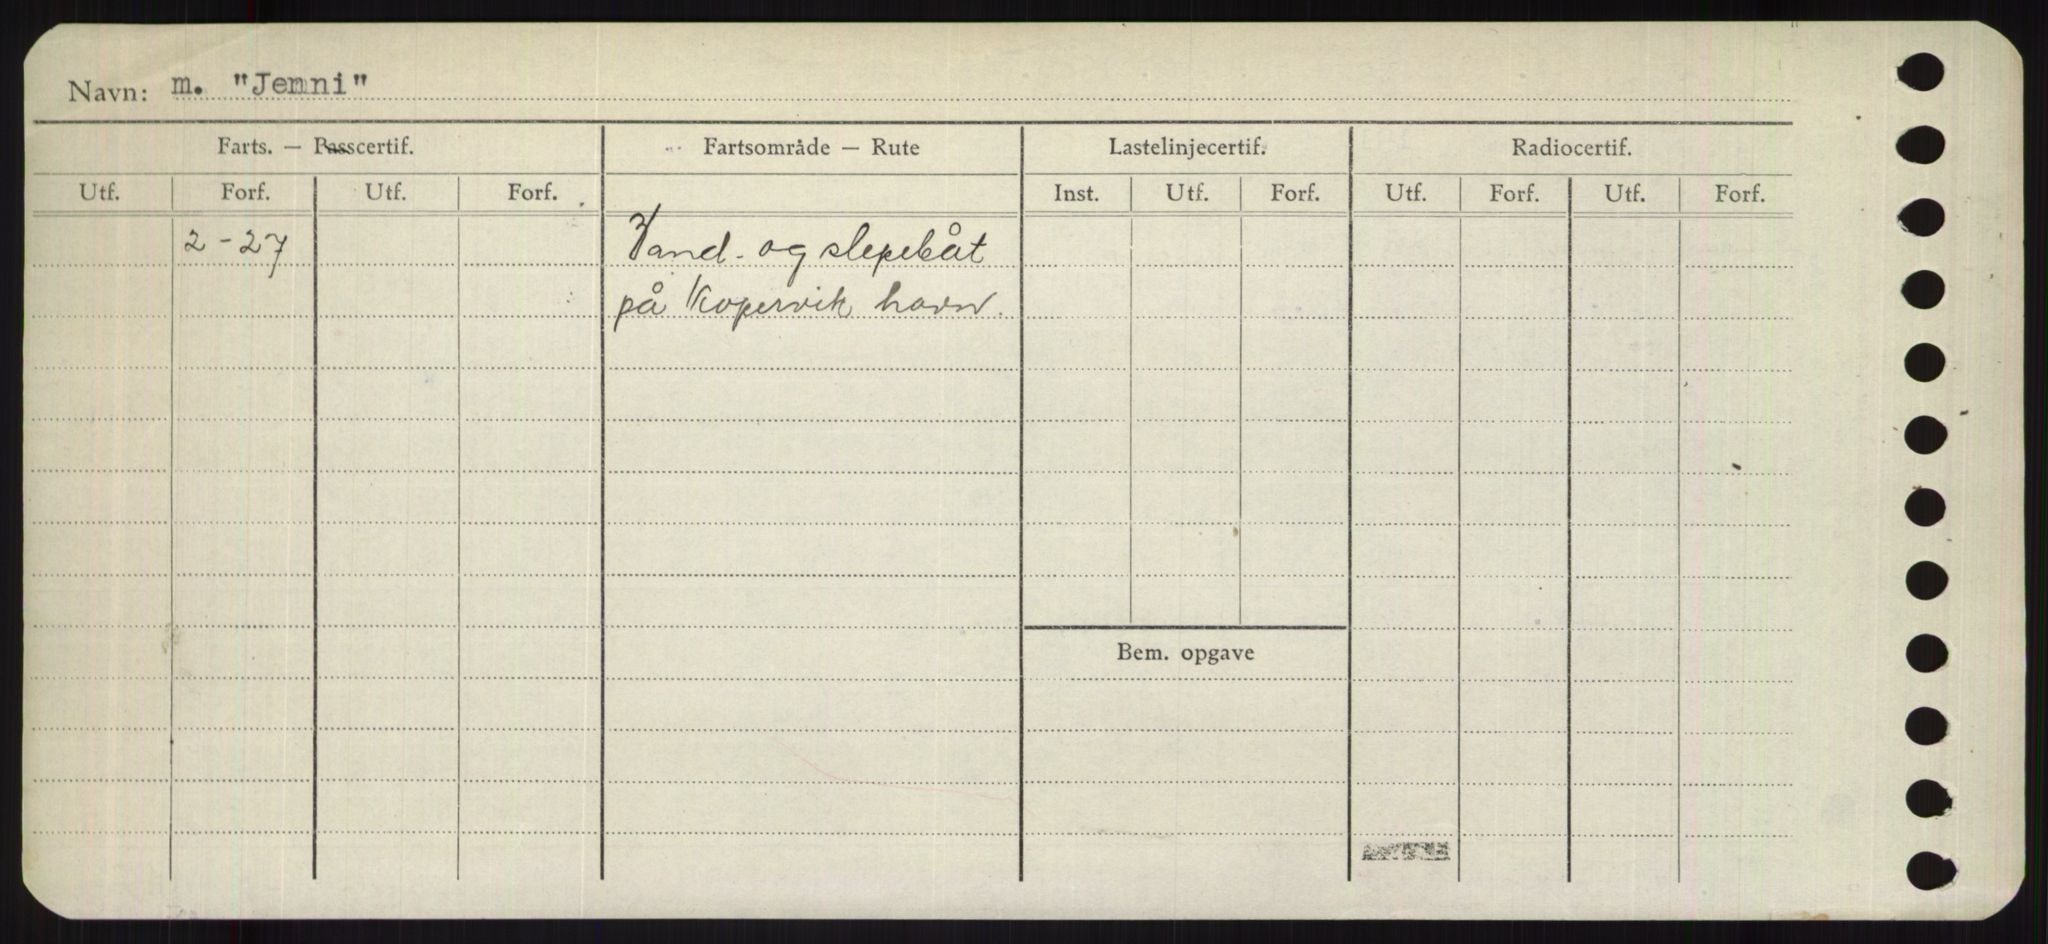 Navn: m. "Jemni"
Farts. — Passcertif. Fartsområde — Rute Lastelinjecertif. Radiocertif.
Utf. Forf. Utf. Forf. Inst. Utf. Forf. Utf. Forf. Utf. Forf.
2-27 Vand- og slepebåt
på Kopervik havn.
Bem. opgave